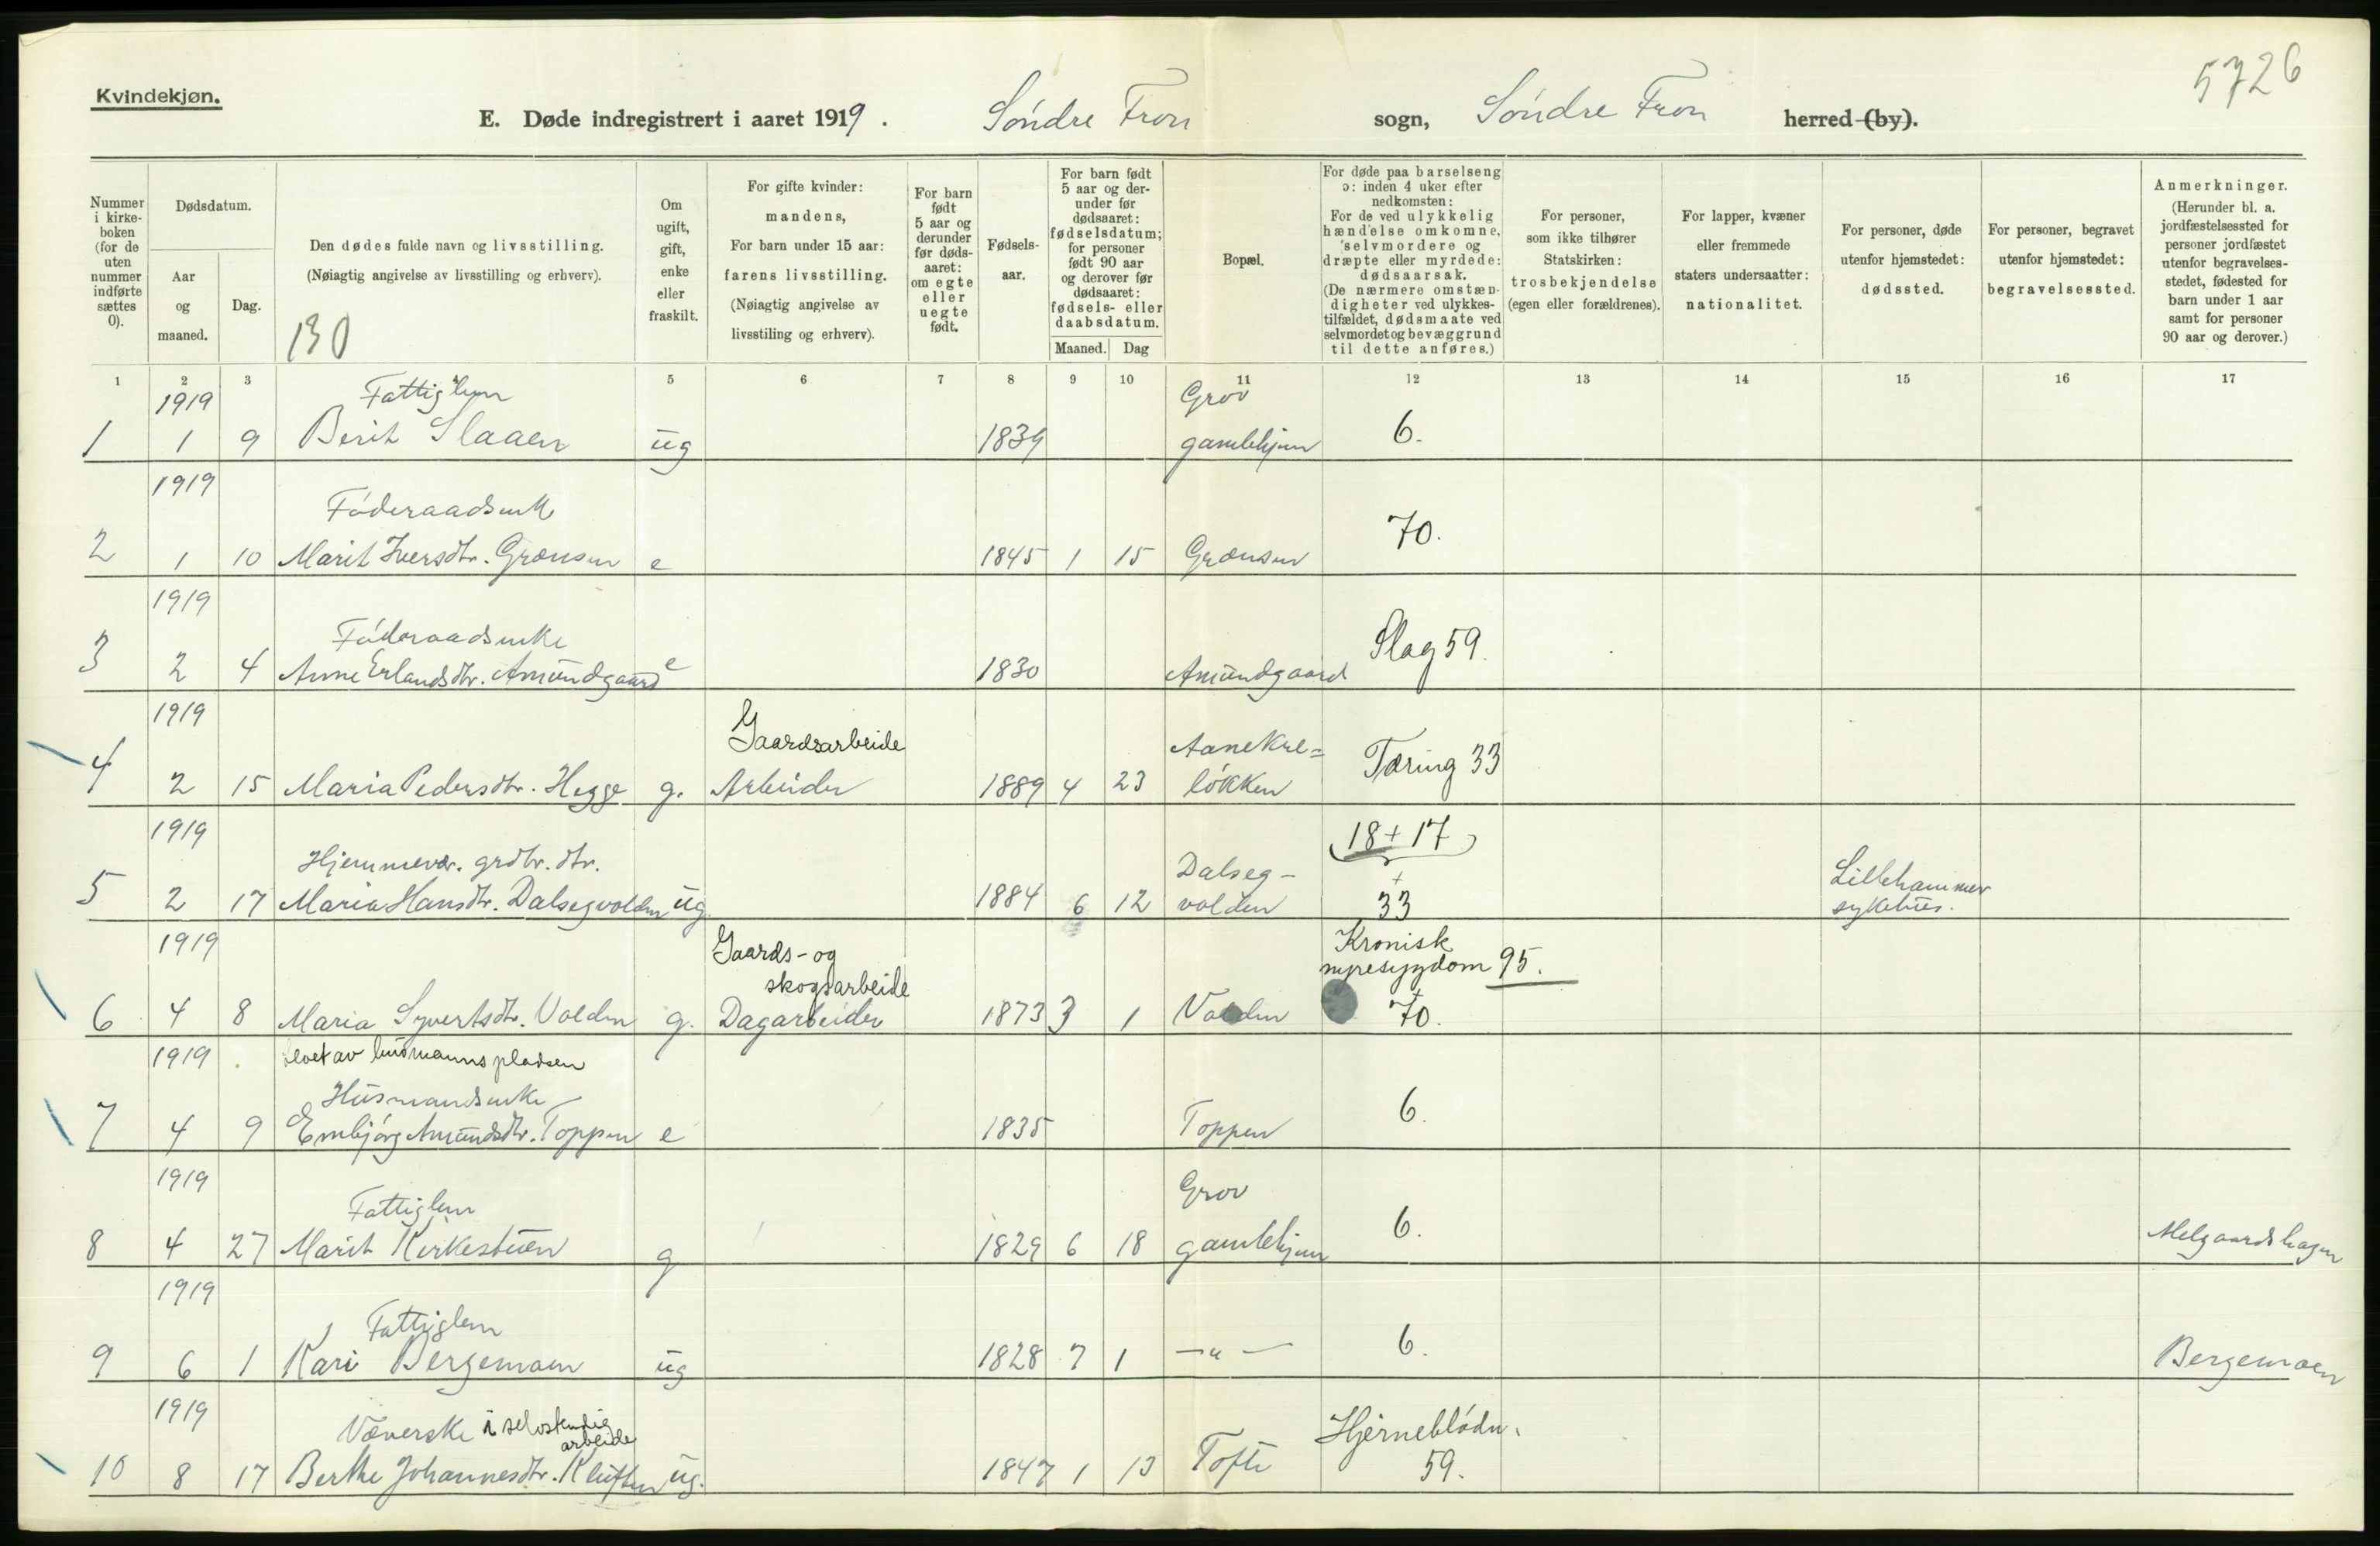 5726
Kvindekjøn.
E. Døde indregistrert i aaret 1919. Søndre Fron sogn, Søndre Fron herred (by).
Nummer i kirkeboken (for de uten nummer indførte sættes 0).
Dødsdatum.
Aar og maaned.
Dag.
Den dødes fulde navn og livsstilling.
(Nøiagtig angivelse av livsstilling og erhverv).
130
Om ugift, gift, enke eller fraskilt.
For gifte kvinder: mandens,
For barn under 15 aar: farens livsstilling.
(Nøiagtig angivelse av livsstiling og erhverv).
For barn født 5 aar og derunder før dødsaaret: om egte eller uegte født.
Fødselsaar.
For barn født 5 aar og derunder før dødsaaret: fødselsdatum; for personer født 90 aar og derover før dødsaaret: fødsels- eller daabsdatum.
Maaned. Dag
Bopæl.
For døde paa barselseng ɔ: inden 4 uker efter nedkomsten:
For de ved ulykkelig hændelse omkomne, selvmordere og dræpte eller myrdede: dødsaarsak.
(De nærmere omstændigheter ved ulykkestilfældet, dødsmaate ved selvmordet og bevæggrund til dette anføres.)
For personer, som ikke tilhører Statskirken: trosbekjendelse (egen eller forældrenes).
For lapper, kvæner eller fremmede staters undersaatter: nationalitet.
For personer, døde utenfor hjemstedet: dødssted.
For personer, begravet utenfor hjemstedet: begravelsessted.
Anmerkninger.
(Herunder bl. a. jordfæstelsessted for personer jordfæstet utenfor begravelsesstedet, fødested for barn under 1 aar samt for personer 90 aar og derover.)
1 2 3 5 6 7 8 9 10 11 12 13 14 15 16 17
1919 Fattiglem Grov
1 1 9 Berit Slaaen ug 1839 gamlehjem 6.
1919 Føderaadsenke
2 1 10 Marit Iversdtr. Grænsen e 1845 1 15 Grænsen 70.
1919 Føderaadsenke
3 2 4 Anne Erlandsdtr. Amundgaard e 1830 Amundgaard Slag 59.
1919 Gaardsarbeide
4 2 15 Maria Pedersdtr. Hegge g. Arbeider 1889 4 23 løkken Tæring 33
1919 Hjemmevær. grdbr. dtr. Dalseg- 18 + 17
5 2 17 Maria Hansdtr. Dalsegvolden ug 1884 6 12 volden + 33 Lillehammer sykehus.
1919 Gaards- og skogsarbeide Kronisk nyresygdom 95.
6 4 8 Maria Syvertsdtr. Volden g. Dagarbeider 1873 3 1 Volden + 70.
1919 levet av husmannspladsen
Husmandsenke
7 4 9 Embjørg Amundsdtr. Toppen e 1835 Toppen 6.
1919 Fattiglem Grov
8 4 27 Marit Kirkestuen g 1829 6 18 gamlehjem 6. Melgaardshagen
1919 Fattiglem
9 6 1 Kari Bergemoen ug 1828 7 1 —„— 6. Bergemoen
1919 Væverske i selvstendig arbeide Hjerneblødn.
10 8 17 Berthe Johannesdtr. Kluften ug. 1847 1 13 Tofte 59.